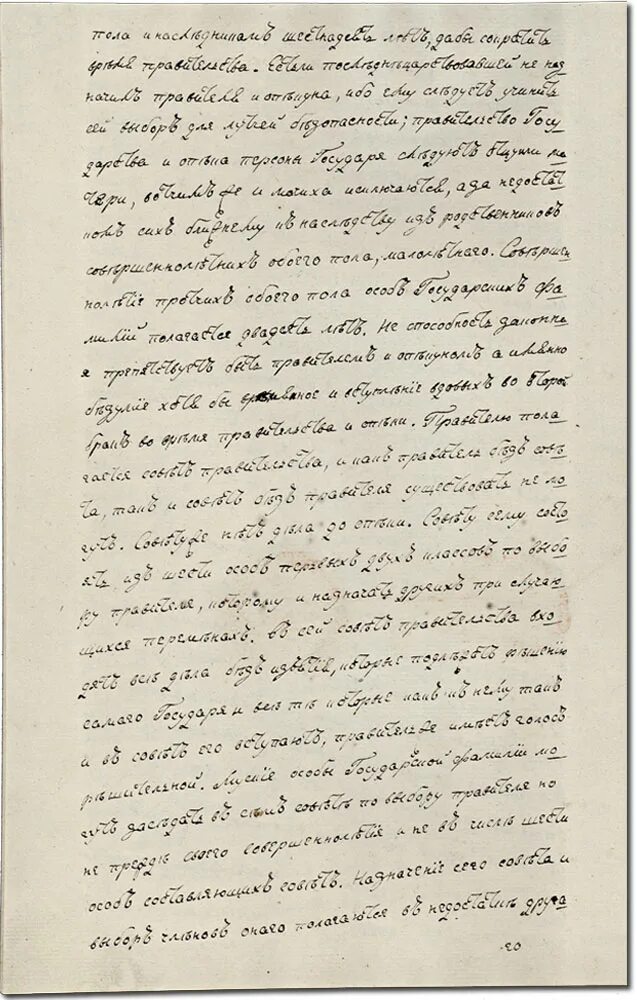 пола и наслѣдникамъ шестнадцать лѣтъ, дабы сократить
время правительства. Естьли послѣднѣцарствовавшей не наз
начилъ правителя и опекуна, ибо ему слѣдуетъ учинить
сей выборъ для лутчей безопасности; правительство Госу
дарства и опека персоны Государя слѣдуютъ отцу или ма
тери, вотчимъ же и мачиха исключаются, а за недостат
комъ сихъ ближнему къ наслѣдству изъ родственниковъ
совершеннолѣтнихъ обоего пола, малолѣтнаго. Совершен
нолѣтіе протчихъ обоего пола особъ Государскихъ фа
милій полагается двадцать лѣтъ. Не способность законна
я препятствуетъ быть правителемъ и опекуномъ а имянно
безуміе хотя бы временное и вступленіе вдовыхъ во второй
бракъ во время правительства и опеки. Правителю пола
гается совѣтъ правительства, и какъ правитель безъ совѣ
та, такъ и совѣтъ безъ правителя существовать не мо
гутъ. Совѣту же нѣтъ дѣла до опеки. Совѣту сему состо
ять изъ шести особъ первыхъ двухъ классовъ по выбо
ру правителя, которому и назначать другихъ при случаю
щихся перемѣнахъ. Въ сей совѣтъ правительства вхо
дятъ всѣ дѣла безъ изъятія, которые подлежатъ рѣшенію
самаго Государя и всѣ тѣ которые какъ къ нему такъ
и въ совѣтъ его вступаютъ, правитель же имѣетъ голосъ
рѣшительной. Мускіе особы Государской фамиліи мо
гутъ засѣдать въ семъ совѣтѣ по выбору правителя но
не прежде своего совершеннолѣтія и не въ числѣ шести
особъ составляющихъ совѣтъ. Назначеніе сего совѣта и
выборъ членовъ онаго полагаются въ недостаткѣ друга
го